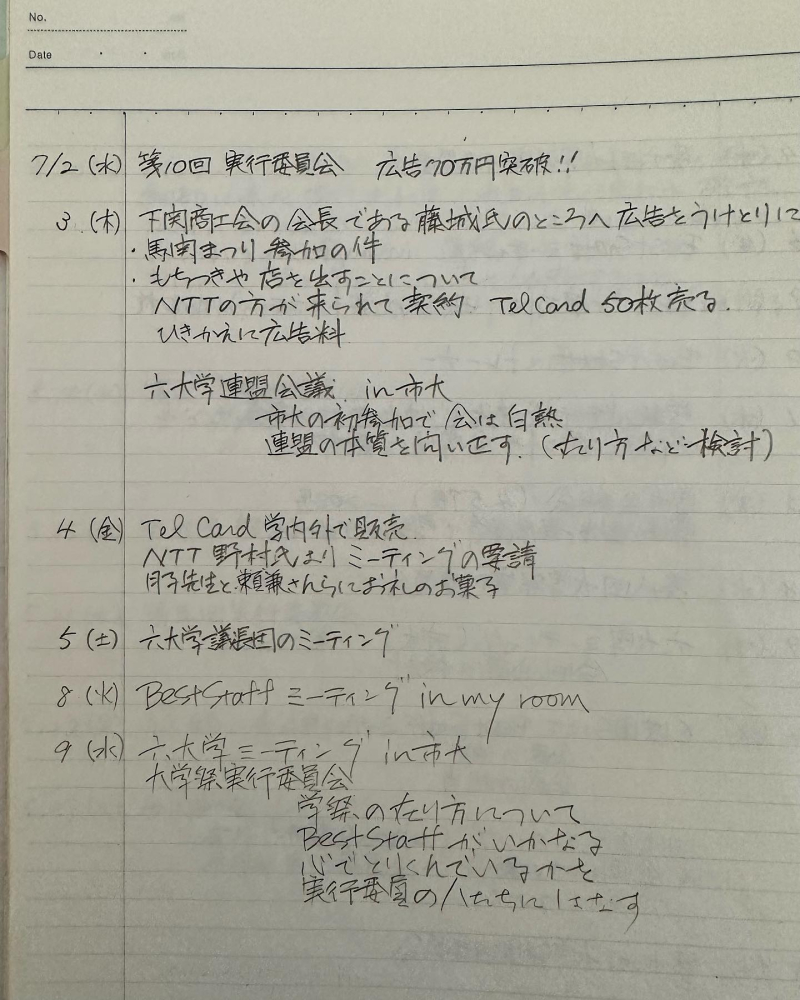 No.
Date
7/2 (水) 第10回 実行委員会 広告70万円突破!!
3 (木) 下関商工会の会長である藤城氏のところへ広告をうけとりに
・馬関まつり参加の件
・もちつきや店を出すことについて
NTTの方が来られて契約 Tel Card 50枚売る.
ひきかえに広告料
六大学連盟会議 in 市大
市大の初参加で会は白熱
連盟の本質を問い正す. (在り方など検討)
4 (金) Tel Card 学内外で販売.
NTT 野村氏よりミーティングの要請
先生と頼兼さんらにお礼のお菓子
5 (土) 六大学議長団のミーティング
8 (火) Best Staff ミーティング in my room
9 (水) 六大学ミーティング in 市大
大学祭実行委員会
学祭の在り方について
Best Staff がいかなる
心でとりくんでいるかを
実行委員の人たちにはなす